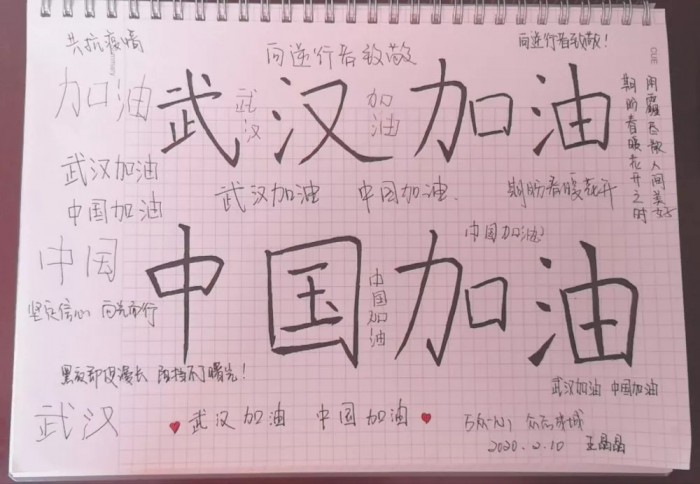 共抗疫情
向逆行者致敬
向逆行者致敬!
加油
武汉加油
武汉
加油
阴霾尽散人间美好
期盼春暖花开之时
武汉加油
中国加油
武汉加油 中国加油
期盼春暖花开
中国加油
中国加油
中国
中国加油
坚定信心 向光而行
黑夜即使漫长 阻挡不了曙光!
武汉加油 中国加油
武汉
武汉加油 中国加油
万众一心 众志成城
2020.2.10 王晶晶